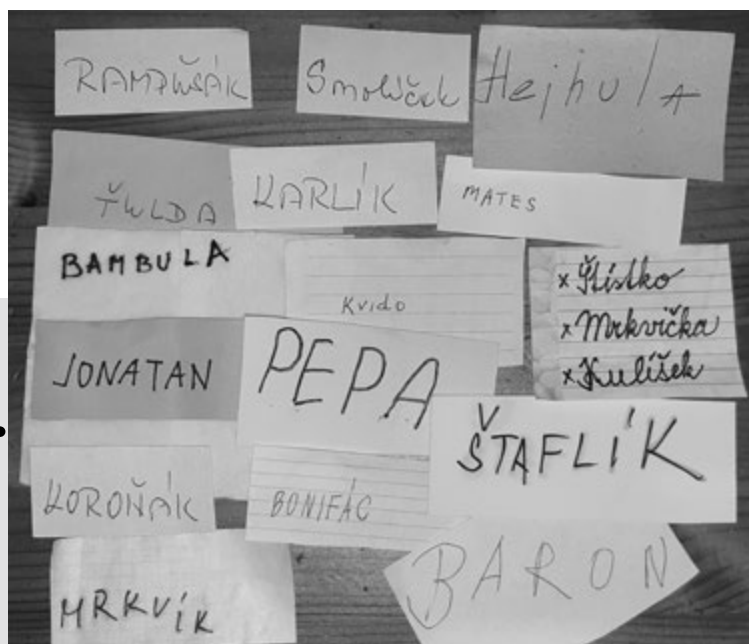 RAMPUŠÁK
Smolíček
Hejhula
ŤULDA
KARLÍK
MATES
BAMBULA
Kvido
x Štístko
x Mrkvička
x Kulíšek
JONATAN
PEPA
ŠTAFLÍK
KOROŇÁK
BONIFÁC
BARON
MRKVÍK